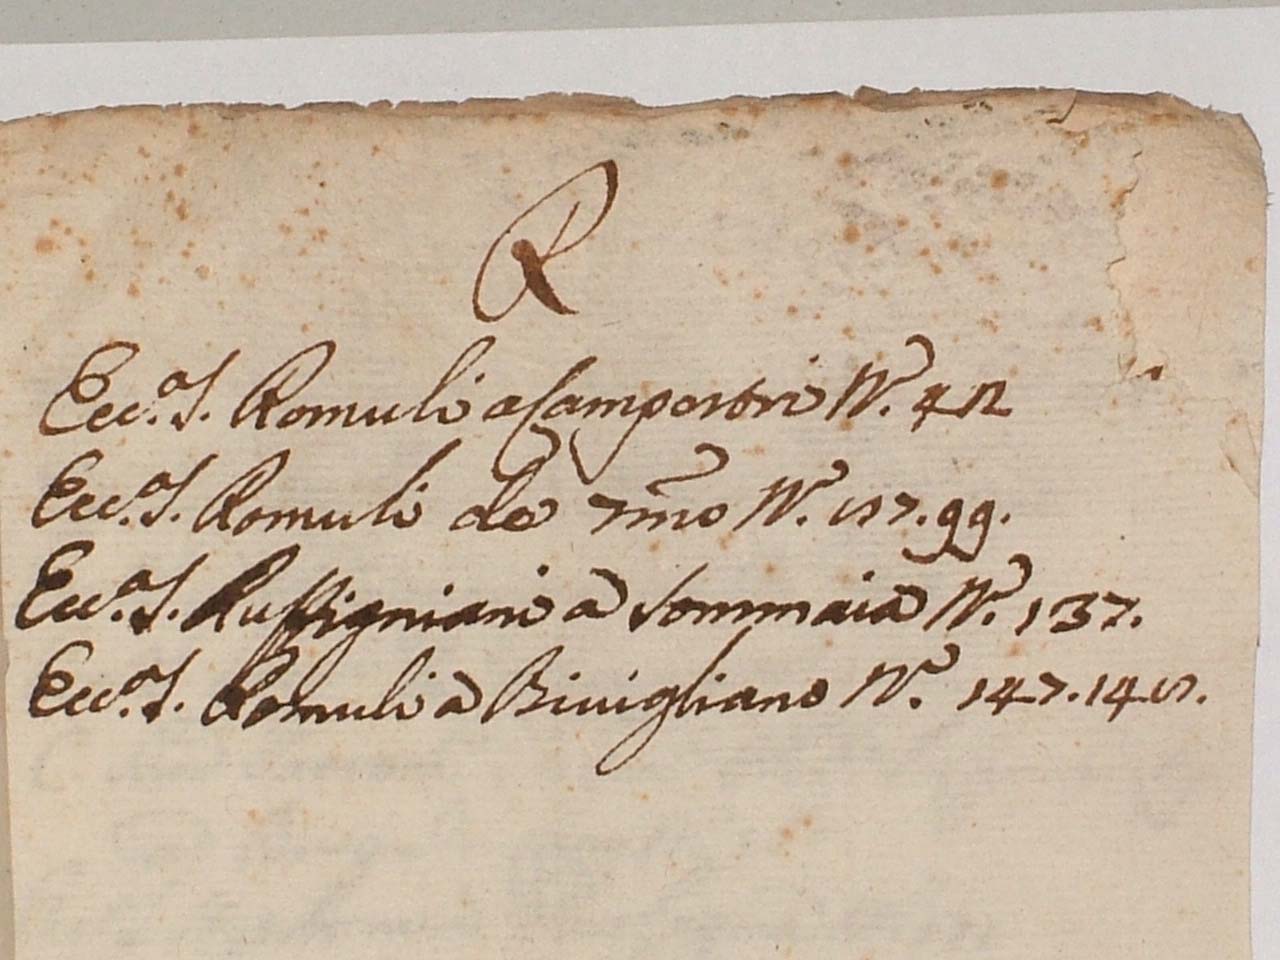 R
Ecc.a S. Romuli a Campestri N.o 42
Ecc.a S. Romuli de N.o 87.99.
Ecc.a S. Ruffigniani a Sommaia N.o 137.
Ecc.a S. Romuli a Bivigliano N.o 147.148.